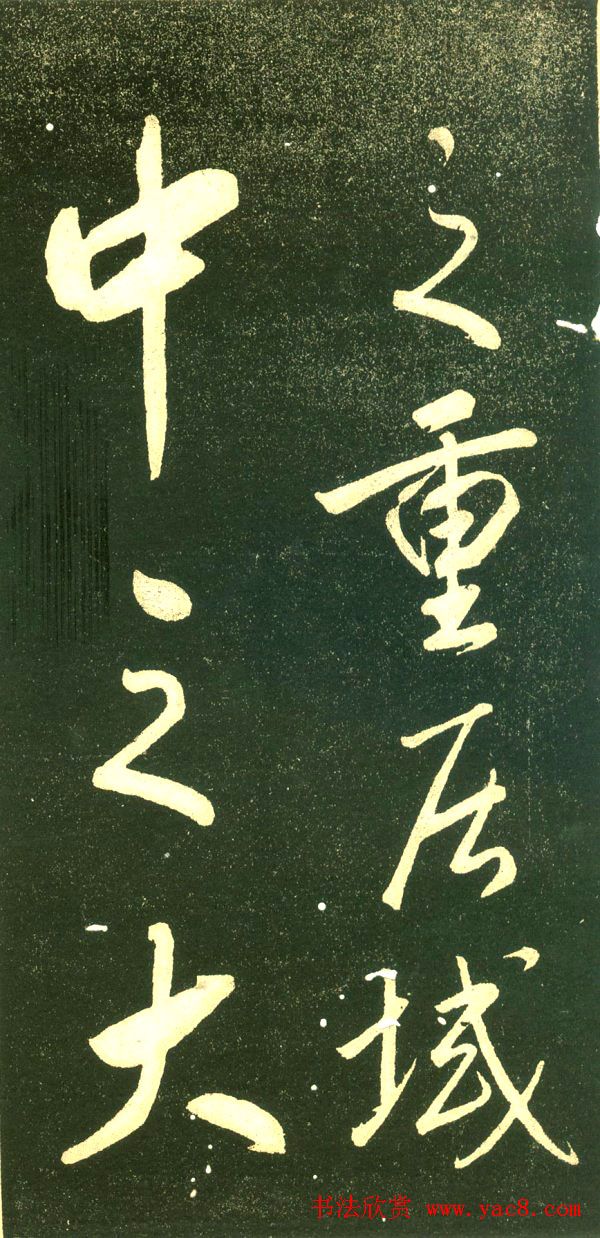 之重居域
中之大
书法欣赏 www.yac8.com